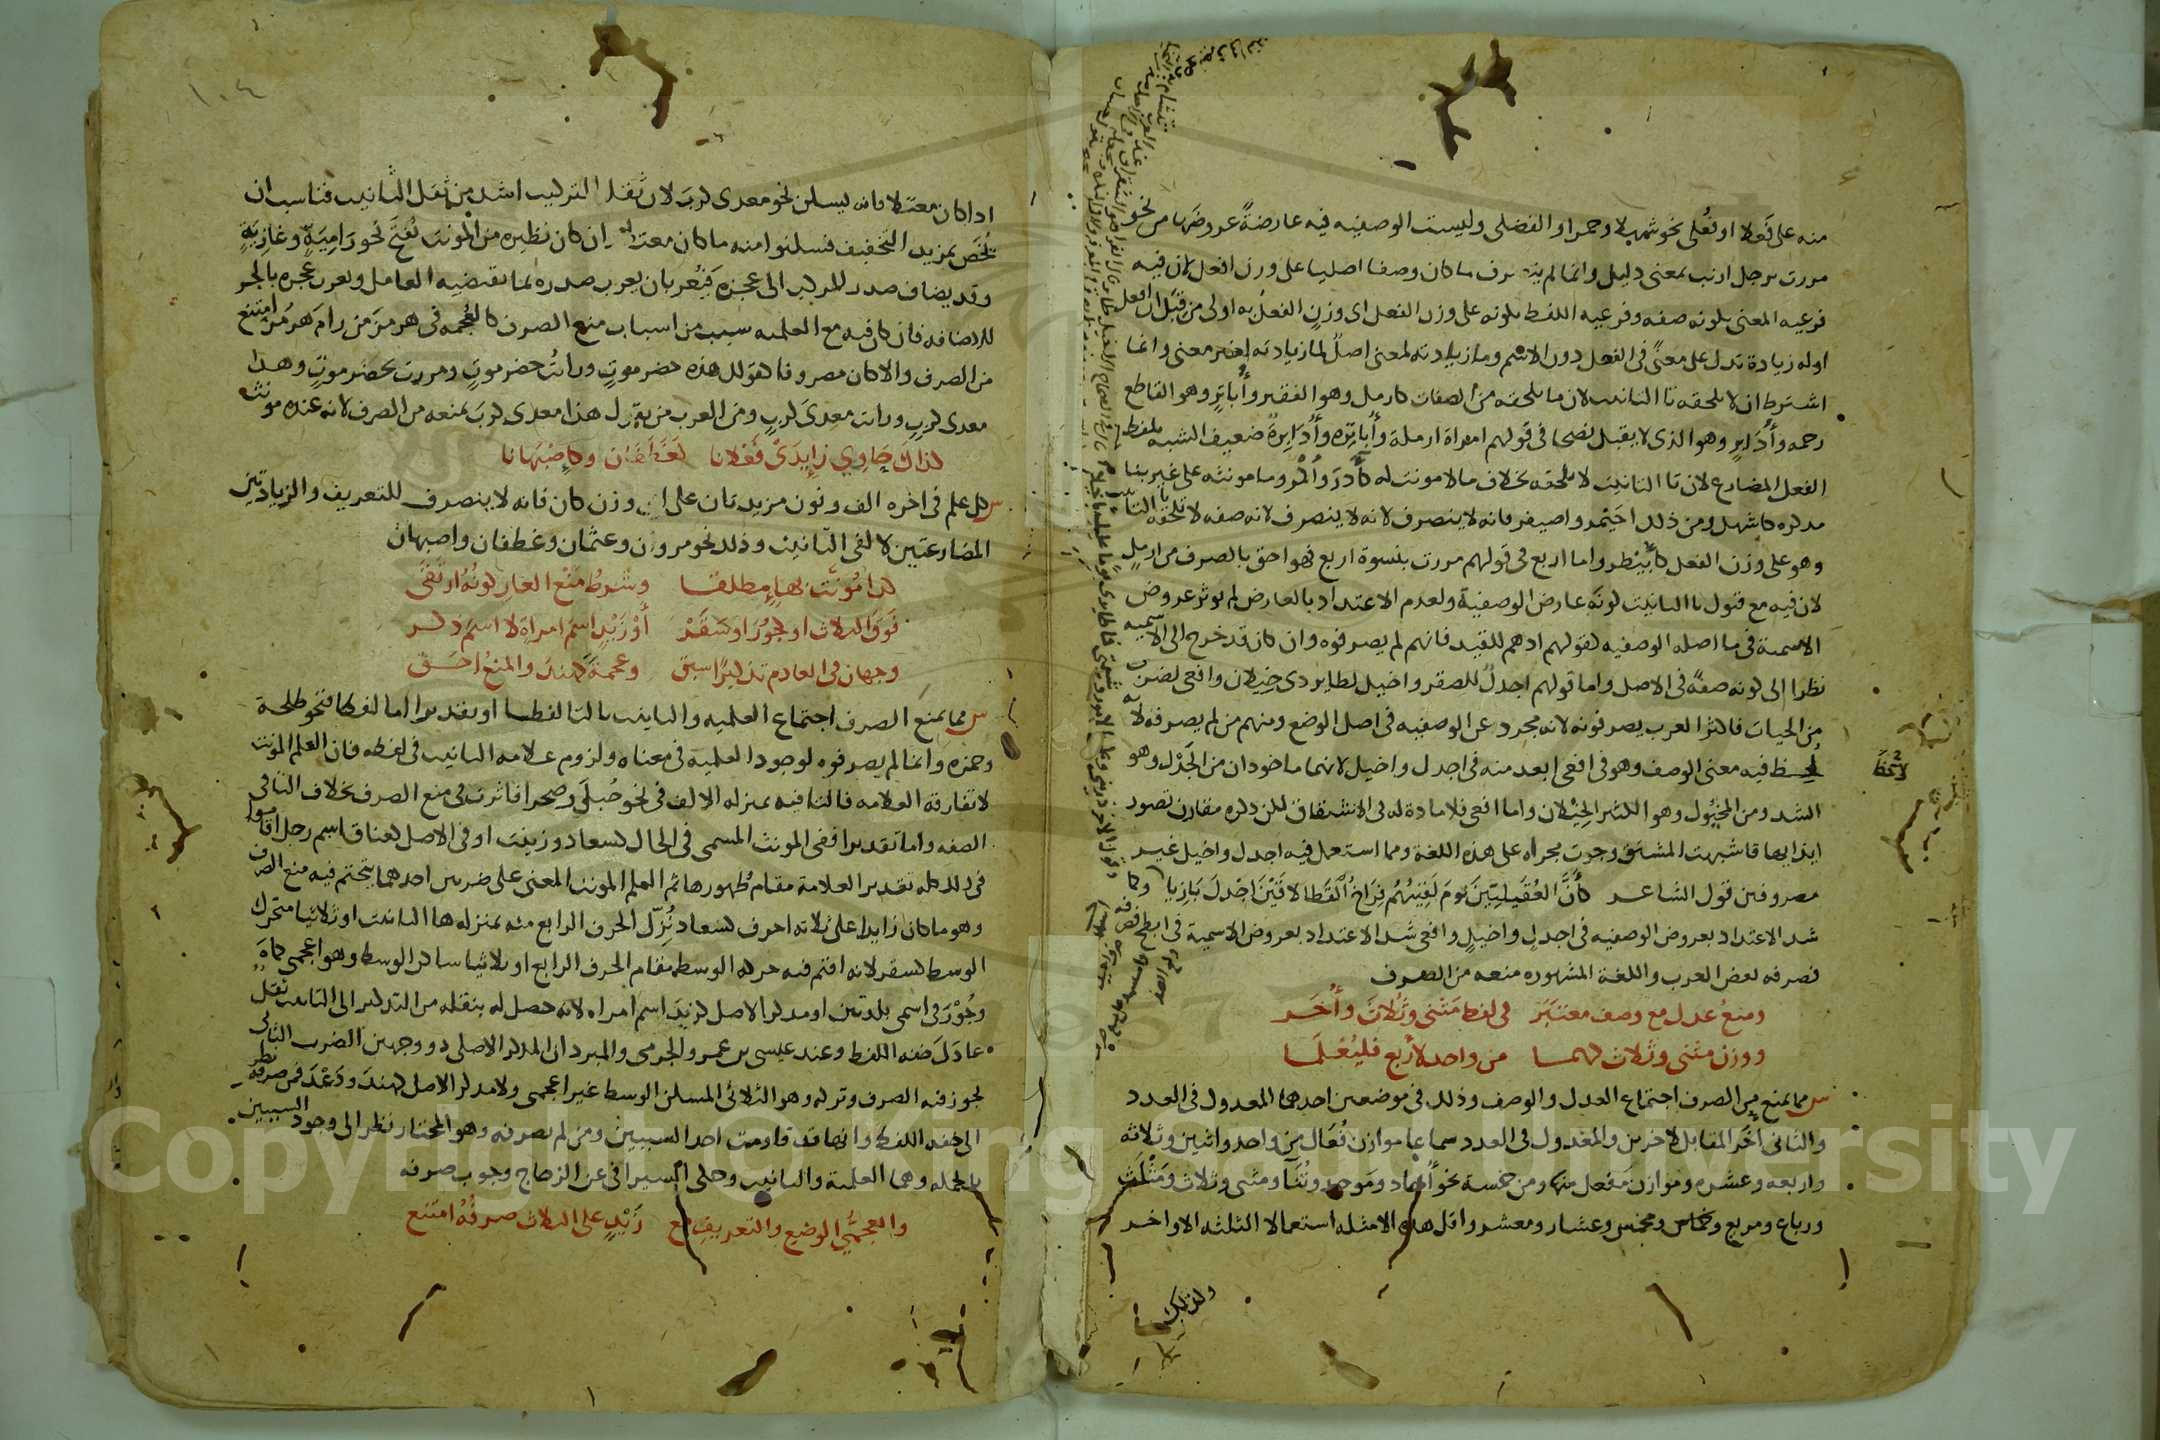 منه على فَعلا او فُعلى نحو شهلا وحمرا والفضلى وليست الوصفيه فيه عارضةً عروضَها من نحو
مررت برجل ارنب بمعنى ذليل وانما لم ينصرف ما كان وصفا اصليا على وزن افعل لان فيه
فرعيه المعنى بكونه صفه وفرعيه اللفظ بكونه على وزن الفعل اى وزنٍ الفعلُ به اولى من قِبَل ان افعل
اوله زيادة تدل على معنًى فى الفعل دون الاسم وما زيادته لمعنى اصلٌ لما زيادته لغير معنى وانما
اشترط ان لا تلحقه تا التانيث لان ما تلحقه من الصفات كارمل وهو الفقير وأُباتِرٍ وهو القاطع
رحمه وأُدابرٍ وهو الذى لا يقبل نصحا فى قولهم امراة ارملة وأُباتِرة وأُدابِرةٌ ضعيف الشبه بلفظ
الفعل المضارع لان تا التانيث لا تلحقه بخلاف ما لا مونث له كآدرَ وأكْمَر وما مونثه على غير بنا
مذكره كاشهل ومن ذلك احَيْمر واصيفر فانه لا ينصرف لانه صفه لا تلحقه التا
وهو على وزن الفعل كاُبَيْطر واما اربع فى قولهم مررت بنسوة اربع فهو احق بالصرف من ارملٍ
لان فيه مع قبول تا التانيث كونَه عارض الوصفية ولعدم الاعتداد بالعارض لم يوثر عروض
الاسمية فى ما اصله الوصفيه كقولهم ادهم للقيد فانهم لم يصرفوه وان كان قد خرج الى الاسميه
نظرا الى كونه صفةً فى الاصل واما قولهم اجدلٌ للصقر واخيل لطاير ذى خِيلان وافعى لضرب
من الحيات فاكثر العرب يصرفونه لانه مجرد عن الوصفيه فى اصل الوضع ومنهم من لم يصرفه لانه
لحظ فيه معنى الوصف وهو فى افعى ابعد منه فى اجدل واخيل لانهما ماخوذان من الجَدْل وهو
الشد ومن المخيُول وهو الكثير الخِيْلان واما افعى فلا مادة له فى الاشتقاق لكن ذكره مقارن تصور
ايذايها فاشبهت المشتق وجرت مجراه على هذه اللغة ومما استعمل فيه اجدل واخيل غير
مصروفين قول الشاعر كأنَّ العُقَيليِّينَ يومَ لَقِيتُهُم فِرَاخُ القَطا لاقَيْنَ اجْدلَ بَازِيا وكما
شذ الاعتداد بعروض الوصفيه فى اجدلٍ واخيلٍ وافعى شذ الاعتداد بعروض الاسمية فى ابطح
فصرفه بعض العرب واللغة المشهوره منعه من الصرف
ومنعُ عدل مع وصف معتبَرَ فى لفظ مَثنى وثُلاثَ وأُخَر
ووزن مثنى وثلاث كهما من واحد لأربع فليُعْلَما
س مما يمنع من الصرف اجتماع العدل والوصف وذلك فى موضعين احدهما المعدول فى العدد
والثانى اخَر المقابل لاخرين والمعْدول فى العدد سماعا موازن فُعَال من واحد واثنين وثلاثة
واربعه وعشره وموازن مَفعل منها ومن خمسة نحو أُحاد ومَوحد وثُنَآ ومثنى وثلاث ومَثْلَث
ورباع ومربع وخماس ومخمس وعشار ومعشر واقل هذه الامثله استعمالا الثلثه الاواخر
ولذلك
لاحظ
١٠٤
اذا كان معتلا فانه يسكن نحو معدى كرب لان ثقل التركيب اشد من ثقل التانيث فناسب ان
يُخَصّ بمزيد التخفيف فسكنوا منه ما كان معتلا وان كان نظيره من المونث يُفتَح نحو رَامِيَةٍ وغازِيةٍ
وقد يضاف صدر المركب الى عجزه فيُعرب صدره بما تقتضيه العامل ويعرب عجزه بالجر
للاضافه فان كان فيه مع العلميه سبب من اسباب منع الصرف كالعُجمه فى هرمز من رام هُرمز امتنع
من الصرف والا كان مصروفا تقول هذه حضرموتٍ ورايت حضرموتٍ ومررت بحضرموتٍ وهذا
معدى كربٍ ورايت معدى كربٍ ومن العرب من يقول هذا معدى كربَ يمنعه من الصرف لانه عنده مونث
كذاكَ حاوِي زايِدَىْ فَعْلانا كغَطَفَان وكإِصْبَهانا
س كل علم فى اخره الف ونون مزيدتان على اى وزن كان فانه لا ينصرف للتعريف والزيادتين
المضارعتين لالفى التانيث وذلك نحو مروان وعثمان وغطفان واصبهان
كذا مُونّث بهاءٍ مطلقا وشرطُ مَنْع العارِ كونُهُ ارتَقَى
فَوقَ الثلاث او كجُورَ او سَقَرْ أوْ زَيْدٍ اسمَ امراةٍ لا اسمَ ذكر
وجهان فى العادم تذكيرًا سبق وعجمةً كهندَ والمنعُ احَق
س مما يمنع الصرف اجتماع العلميه والتانيث بالتا لفظا او تقديرا اما لفظا فنحو طلحة
وحمزه وانما لم يصرفوه لوجود العلمية فى معناه ولزوم علامه التانيث فى لفظه فان العلم المونث
لا تفارقه العلامه فالتا فيه بمنزله الالف فى نحو حُبلَى وصحرا فاثرت فى منع الصرف بخلاف التا فى
الصفه واما تقديرا ففى المونث المسمى فى الحال كسعاد وزينب او فى الاصل كعناق اسم رجل اقاموا
فى ذلك كله تقدير العلامة مقام ظهورها ثم العلم المونث المعنى على ضربين احدهما يتحتم فيه منع الصرف
وهو ما كان زايدا على ثلاثه احرف كسعاد نُزِّل الحرف الرابع منه بمنزله ها التانيث او ثلاثيا متحرك
الوسط كسقر لانه اقيم فيه حركه الوسط مقام الحرف الرابع او ثلاثيا ساكن الوسط وهو اعجمى كماهَ
وجُوْرَ فى اسمى بلدتين او مذكر الاصل كزيدَ اسم امراه لانه حصل له بنقله من التذكير الى التانيث ثقل
عادَلَ خفه اللفظ وعند عيسى بن عمر والجرمى والمبرد ان المذكر الاصل ذو وجهين الضرب الثانى
يجوز فيه الصرف وتركه وهو الثلاثى المسكن الوسط غير اعجمى ولا مذكر الاصل كهندَ ودَعْدَ فمن صرفه نظر
الى خفه اللفظ وانها قد قاومت احد السببين ومن لم يصرفه وهو المختار نظر الى وجود السببين
بالجمله وهما العلمية والتانيث وحكى السيرافى عن الزجاج وجوب صرفه
والعجمىُّ الوضعِ والتعريفِ مع زَيْدٍ على الثلاث صرفُهُ امتنع